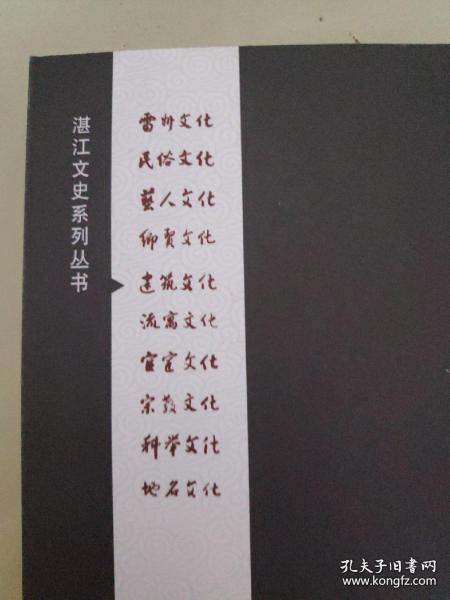 湛江文史系列丛书
雷州文化
民俗文化
藝人文化
乡贤文化
建筑文化
流寓文化
官宦文化
宗教文化
科举文化
地名文化
孔夫子旧书网
www.kongfz.com